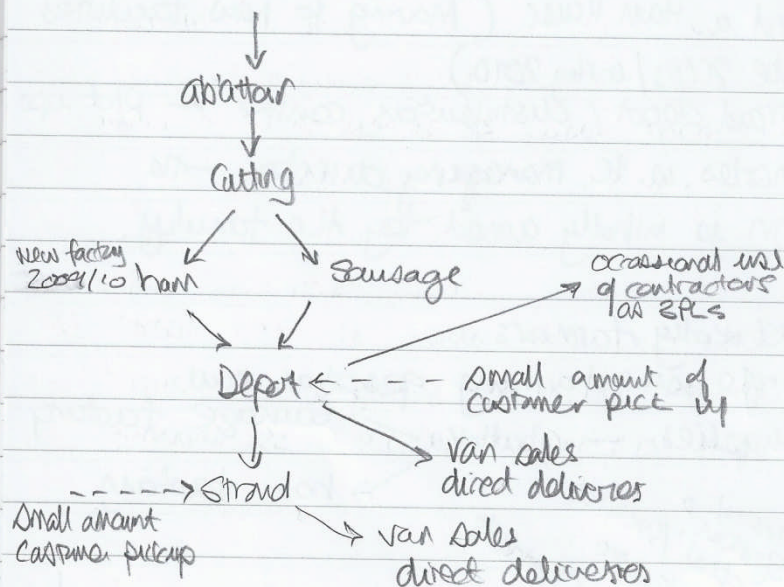 abattoir
Cutting
New factory
2009/10 ham
Sausage
occassional use
of contractors
as 3PLs
Depot
small amount of
customer pick up
van sales
direct deliveries
Stroud
Small amount
customer pickup
van sales
direct deliveries